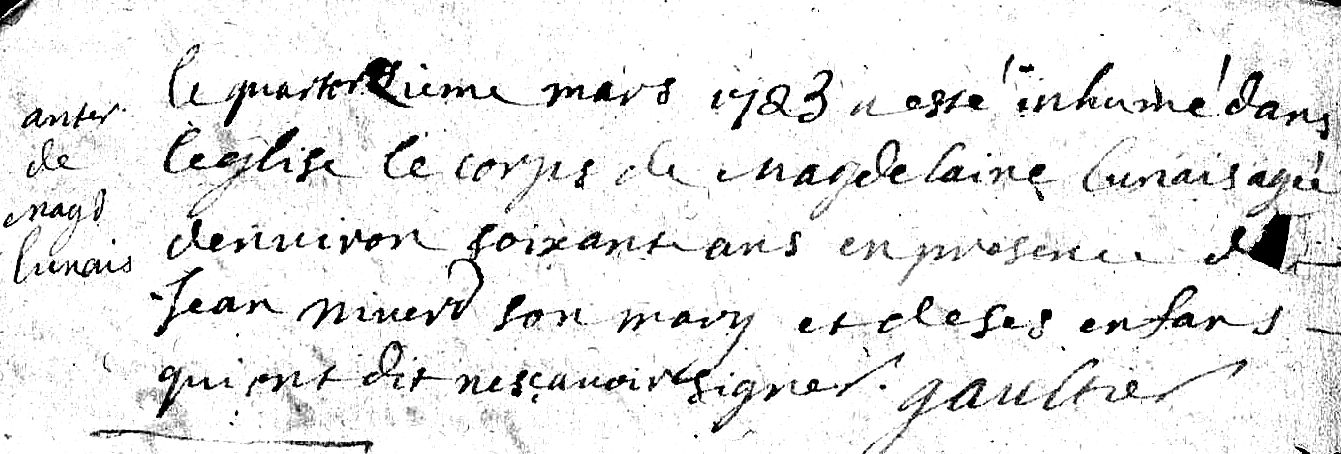 anter
de
magd
lunais
le quatorzieme mars 1723 a esté inhumé dans
leglise le corps de magdelaine lunais agée
denviron soixante ans en presence de
Jean nivard son mary et de ses enfans
qui ont dit ne sçavoir signer. gaultier